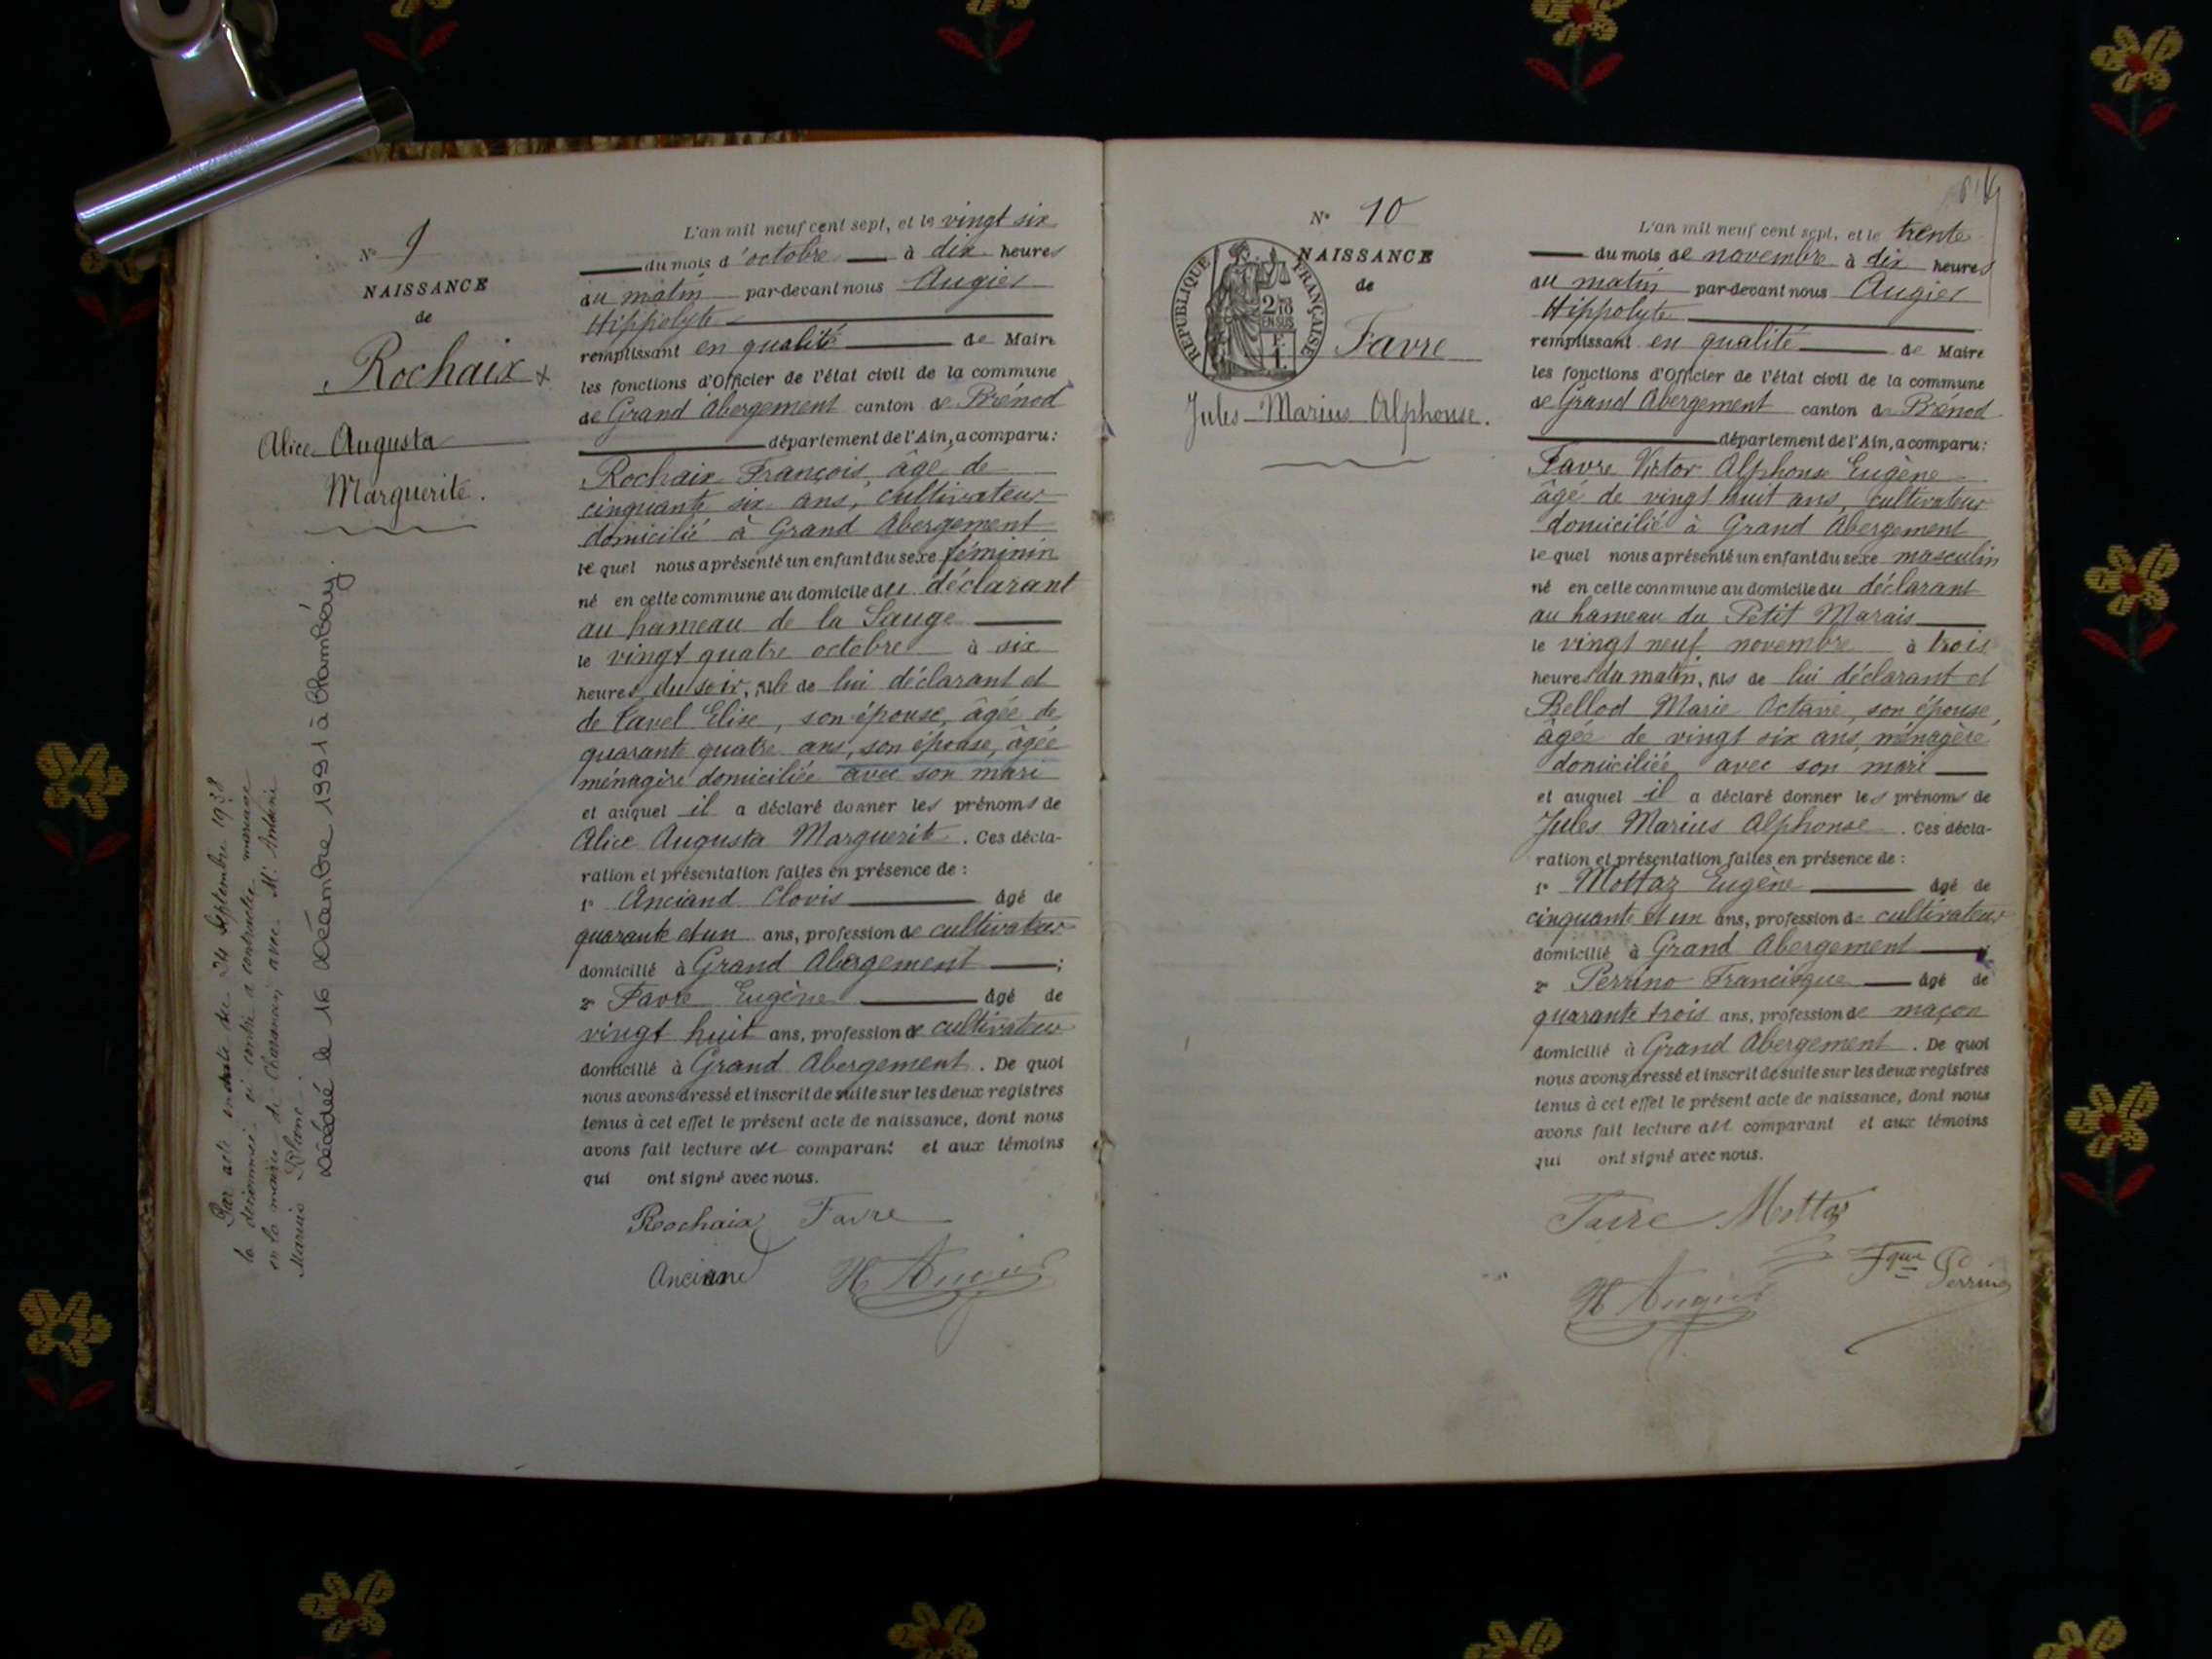 N° 9
NAISSANCE
de
Rochaix
Alice Augusta
Marguerite.
Par acte en date du 24 Septembre 1938
la dénommée ci contre a contracté mariage
en la mairie de Charancin avec Mr Antoine
Marius Blanc.
Décédée le 16 Décembre 1991 à Chambéry.
L'an mil neuf cent sept, et le vingt six
du mois d'octobre à dix heures
du matin par-devant nous Augier
Hippolyte
remplissant en qualité de Maire
les fonctions d'Officier de l'état civil de la commune
de Grand Abergement canton de Brénod
département de l'Ain, a comparu:
Rochaix François, âgé de
cinquante six ans, cultivateur
domicilié à Grand Abergement
lequel nous a présenté un enfant du sexe féminin
né en cette commune au domicile du déclarant
au hameau de la Sauge
le vingt quatre octobre à six
heures du soir, fille de lui déclarant et
de Cavel Elise, son épouse, âgée de
quarante quatre ans, son épouse, âgée
ménagère domiciliée avec son mari
et auquel il a déclaré donner les prénoms de
Alice Augusta Marguerite. Ces décla-
ration et présentation faites en présence de :
1° Anciand Clovis âgé de
quarante et un ans, profession de cultivateur
domicilié à Grand Abergement ;
2° Favre Eugène âgé de
vingt huit ans, profession de cultivateur
domicilié à Grand Abergement. De quoi
nous avons dressé et inscrit de suite sur les deux registres
tenus à cet effet le présent acte de naissance, dont nous
avons fait lecture au comparant et aux témoins
qui ont signé avec nous.
Rochaix Favre
Anciand H Augier
N° 10
NAISSANCE
de
RÉPUBLIQUE FRANÇAISE
2/10
EN SUS
Favre
Jules-Marius Alphonse.
L'an mil neuf cent sept, et le trente
du mois de novembre à dix heures
du matin par-devant nous Augier
Hippolyte
remplissant en qualité de Maire
les fonctions d'Officier de l'état civil de la commune
de Grand Abergement canton de Brénod
département de l'Ain, a comparu:
Favre Victor Alphonse Eugène
âgé de vingt huit ans, cultivateur
domicilié à Grand Abergement
lequel nous a présenté un enfant du sexe masculin
né en cette commune au domicile du déclarant
au hameau du Petit Marais
le vingt neuf novembre à trois
heures du matin, fils de lui déclarant et
Bellod Marie Octavie, son épouse,
âgée de vingt six ans, ménagère
domiciliée avec son mari
et auquel il a déclaré donner les prénoms de
Jules Marius Alphonse. Ces décla-
ration et présentation faites en présence de :
1° Mottaz Eugène âgé de
cinquante et un ans, profession de cultivateur
domicilié à Grand Abergement ;
2° Perrino Francisque âgé de
quarante trois ans, profession de maçon
domicilié à Grand Abergement. De quoi
nous avons dressé et inscrit de suite sur les deux registres
tenus à cet effet le présent acte de naissance, dont nous
avons fait lecture au comparant et aux témoins
qui ont signé avec nous.
Favre Mottaz
Fque Perrino
H Augier